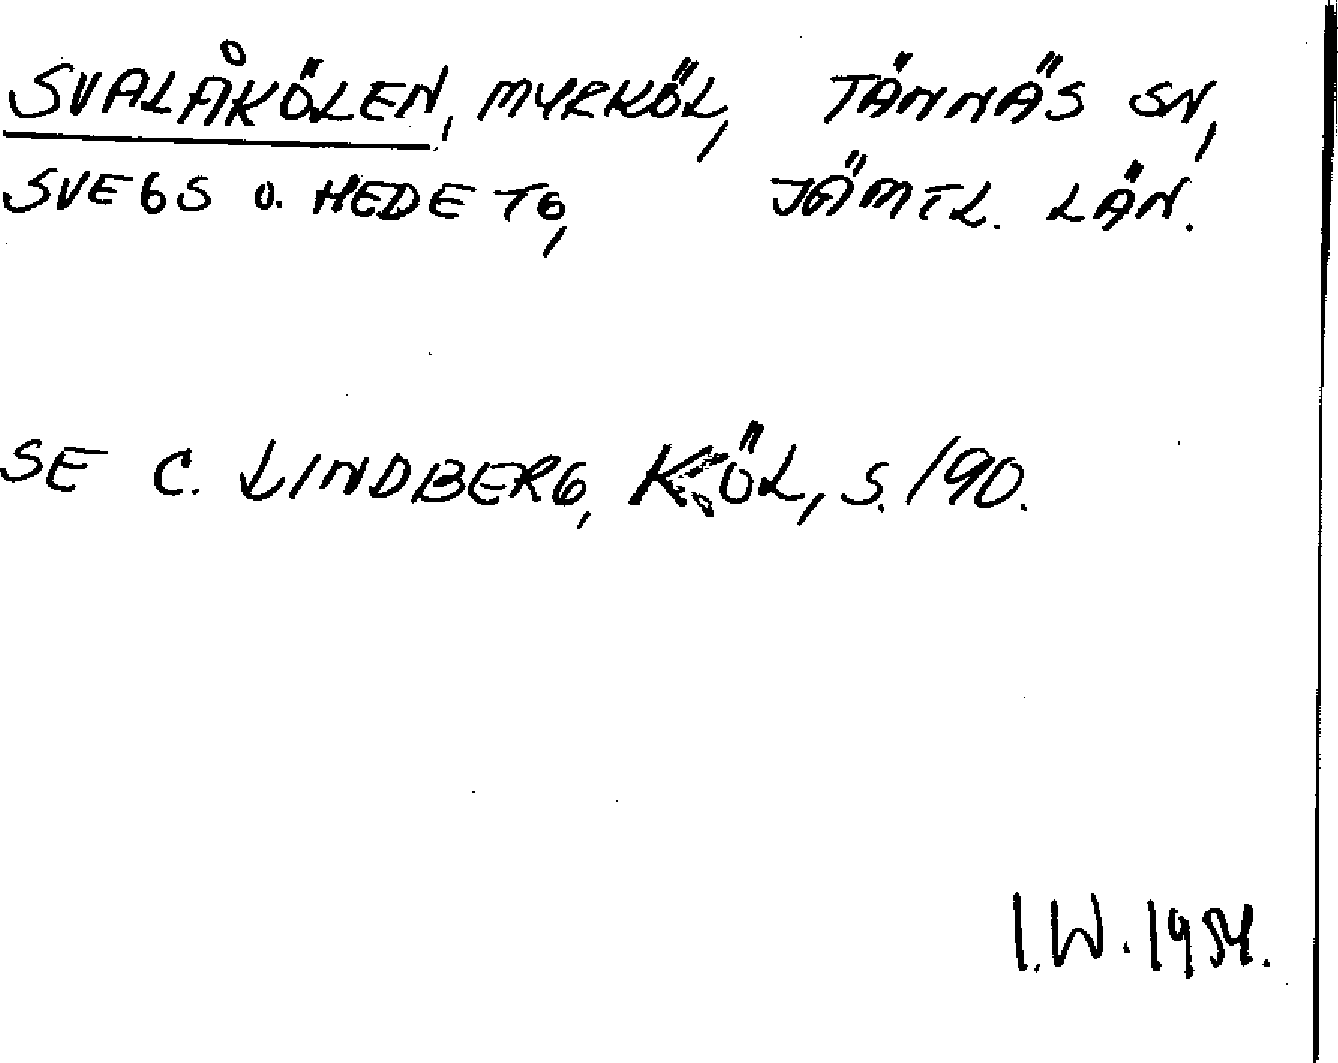 SVALÅKÖLEN, MYRKÖL, TÄNNÄS SN,
SVEGS O. HEDE TG, JÄMTL. LÄN.
SE C. LINDBERG, KÖL, S. 190.
I.W. 1984.